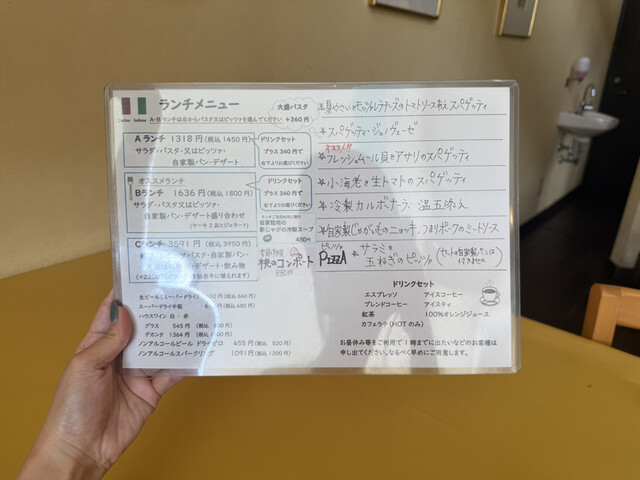 ランチメニュー
A・Bランチは右からパスタ又はピッツァを選んでください
大盛パスタ
+360円
Aランチ 1318円(税込1450円)
サラダ・パスタ・又はピッツァ・
自家製パン・デザート
ドリンクセット
プラス340円で
右下よりお選びください
オススメランチ
Bランチ 1636円(税込1800円)
サラダ・パスタ又はピッツァ・
自家製パン・デザート盛り合わせ
(ケーキ2品とジェラート)
ドリンクセット
プラス340円で
右下よりお選びください
自家栽培の
新じゃがの冷製スープ
480円
Cランチ 3591円(税込3950円)
サラダ・パスタ・自家製パン・
デザート・飲み物
桃のコンポート
880円
生ビール(スーパードライ)
(税込660円)
スーパードライ中瓶
(税込680円)
ハウスワイン 白・赤
グラス 545円
デカンタ 1364円
ノンアルコールビール ドライゼロ 455円(税込 520円)
ノンアルコールスパークリング 1091円(税込1200円)
夏やさいとモッツァレラチーズのトマトソース和え スパゲッティ
☆スパゲッティ・ジェノヴェーゼ
オススメ!!
☆フレッシュムール貝とアサリのスパゲッティ
☆小海老と生トマトのスパゲッティ
☆冷製カルボナーラ、温玉添え
☆自家製じゃがいものニョッキ、つまりポークのミートソース
ピッツァ
PIZZA ☆サラミと
玉ねぎのピッツァ
(セットの自家製パンは
付きません)
ドリンクセット
エスプレッソ アイスコーヒー
ブレンドコーヒー アイスティ
紅茶 100%オレンジジュース
カフェラテ(HOTのみ)
お昼休み等をご利用で1時までに出たいなどのお客様は
申し出てください。なるべく早めにご用意します。